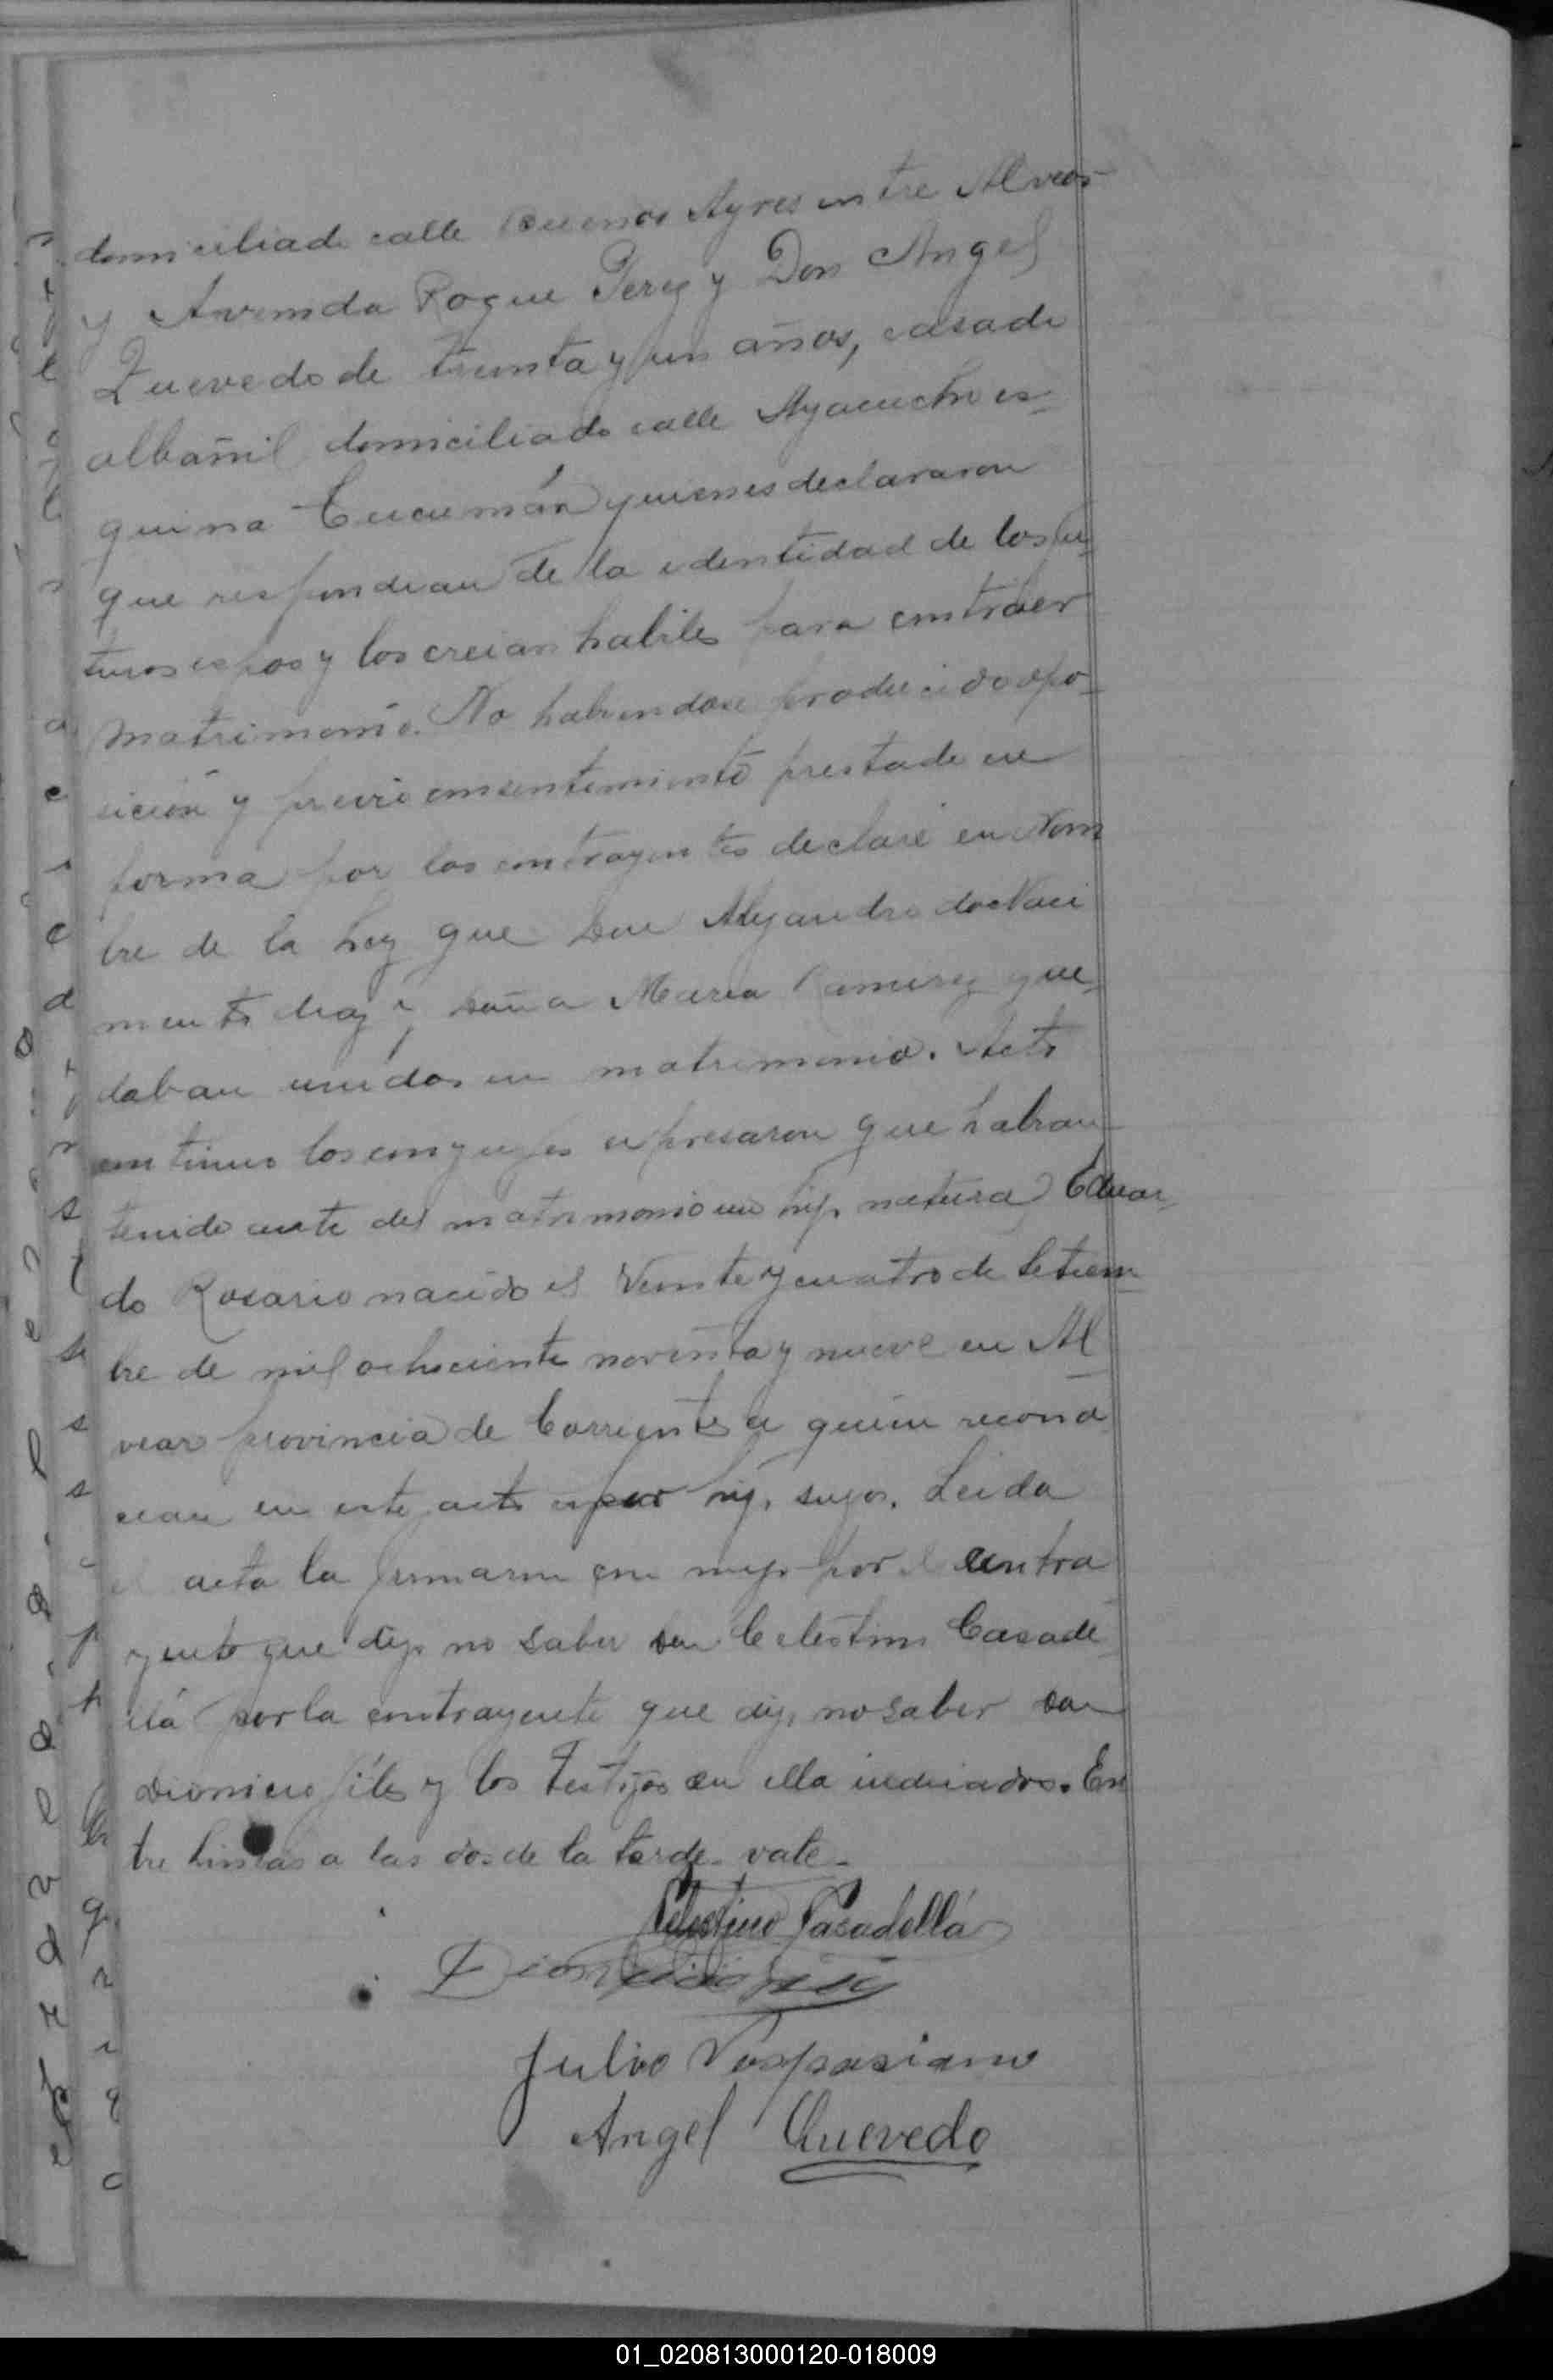 domiciliado calle Buenos Ayres entre Alvear
y Avenida Roque Perez y Don Angel
Quevedo de treinta y un años, casado
albañil domiciliado calle Ayacucho es-
quina Tucumán quienes declararon
que respondian de la identidad de los fu-
turos espos y los creian habiles para contraer
matrimonio. No habiendose producido opo-
sición y previo consentimiento prestado en
forma por los contrayentes declaré en Nom
bre de la Ley que Don Alejandro do Naci
mento y doña Maria Ramirez que-
daban unidos en matrimonio. Acto
continuo los conyuges expresaron que habian
tenido ante del matrimonio un hijo natural Eduar-
do Rosario nacido el Veinte y cuatro de Setiem-
bre de mil ochociento noventa y nueve en Al
vear provincia de Corrientes a quien recono
cian en este acto por hijo suyo. Leida
el acta la firmaron con migo por el contra
yente que dijo no saber Don Celestino Casade
llá por la contrayente que dijo no saber Don
Dionicio y los testigos en ella indicados. En
tre lineas a las dos de la tarde. vale.
Celestino Casadellá
Julio Vespasiano
Angel Quevedo
01_020813000120-018009